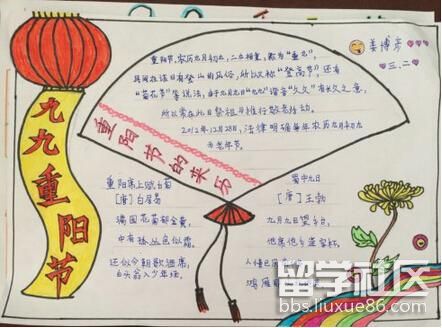 九九重阳节
重阳节的来历
重阳节,农历九月初九,二九相重,称为"重九",
民间在该日有登高的风俗,所以又称"登高节",还有
"菊花节"等说法,由于九月九日"九九"谐音"久久"有长久之意,
所以常在此日祭祖与推行敬老活动。
2012年12月28日,法律明确每年农历九月初九
为老年节。
姜博
三.二
重阳席上赋白菊
[唐]白居易
满园花菊郁金黄,
中有孤丛色似霜。
还似今朝歌酒席,
白头翁入少年场。
蜀中九日
[唐]王勃
九月九日望乡台,
他席他乡送客杯。
人情已
鸿雁
留学社区
bbs.liuxue86.com